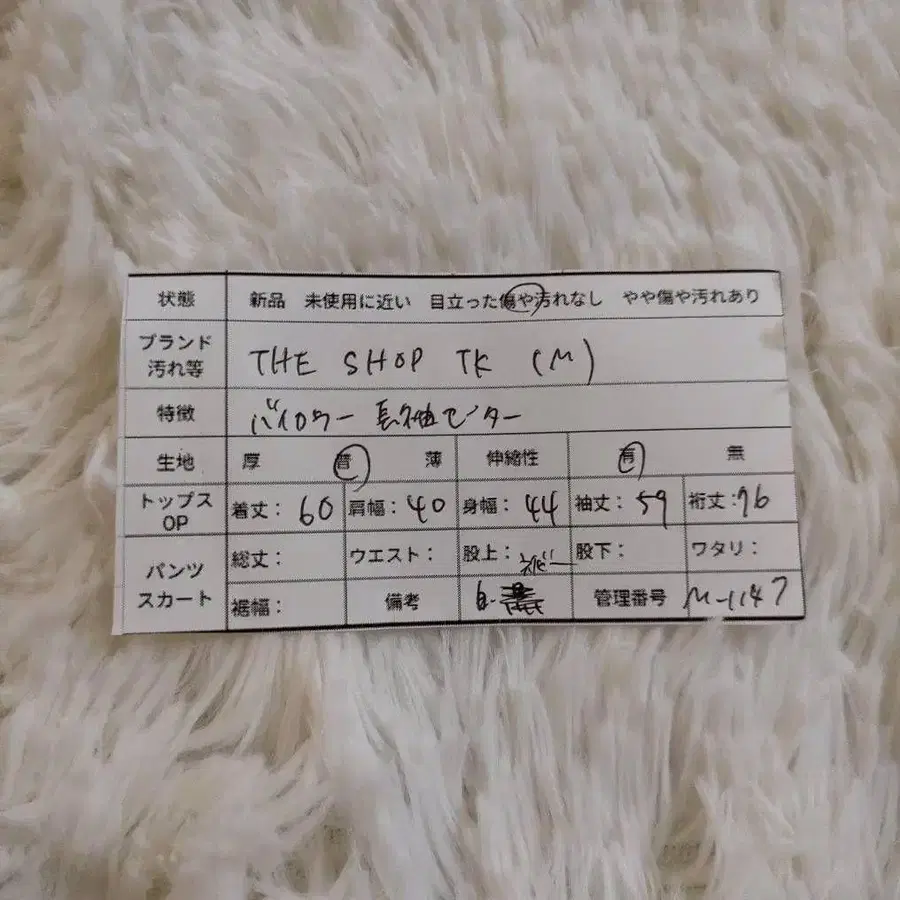 状態 新品 未使用に近い 目立った傷や汚れなし やや傷や汚れあり
ブランド
汚れ等 THE SHOP TK (M)
特徴 バイカラー 長袖セーター
生地 厚 普 薄 伸縮性 有 無
トップス
OP 着丈: 60 肩幅: 40 身幅: 44 袖丈: 59 裄丈: 76
パンツ
スカート 総丈: ウエスト: 股上: 股下: ワタリ:
裾幅: 備考 白・ ネイビー 管理番号 M-1147